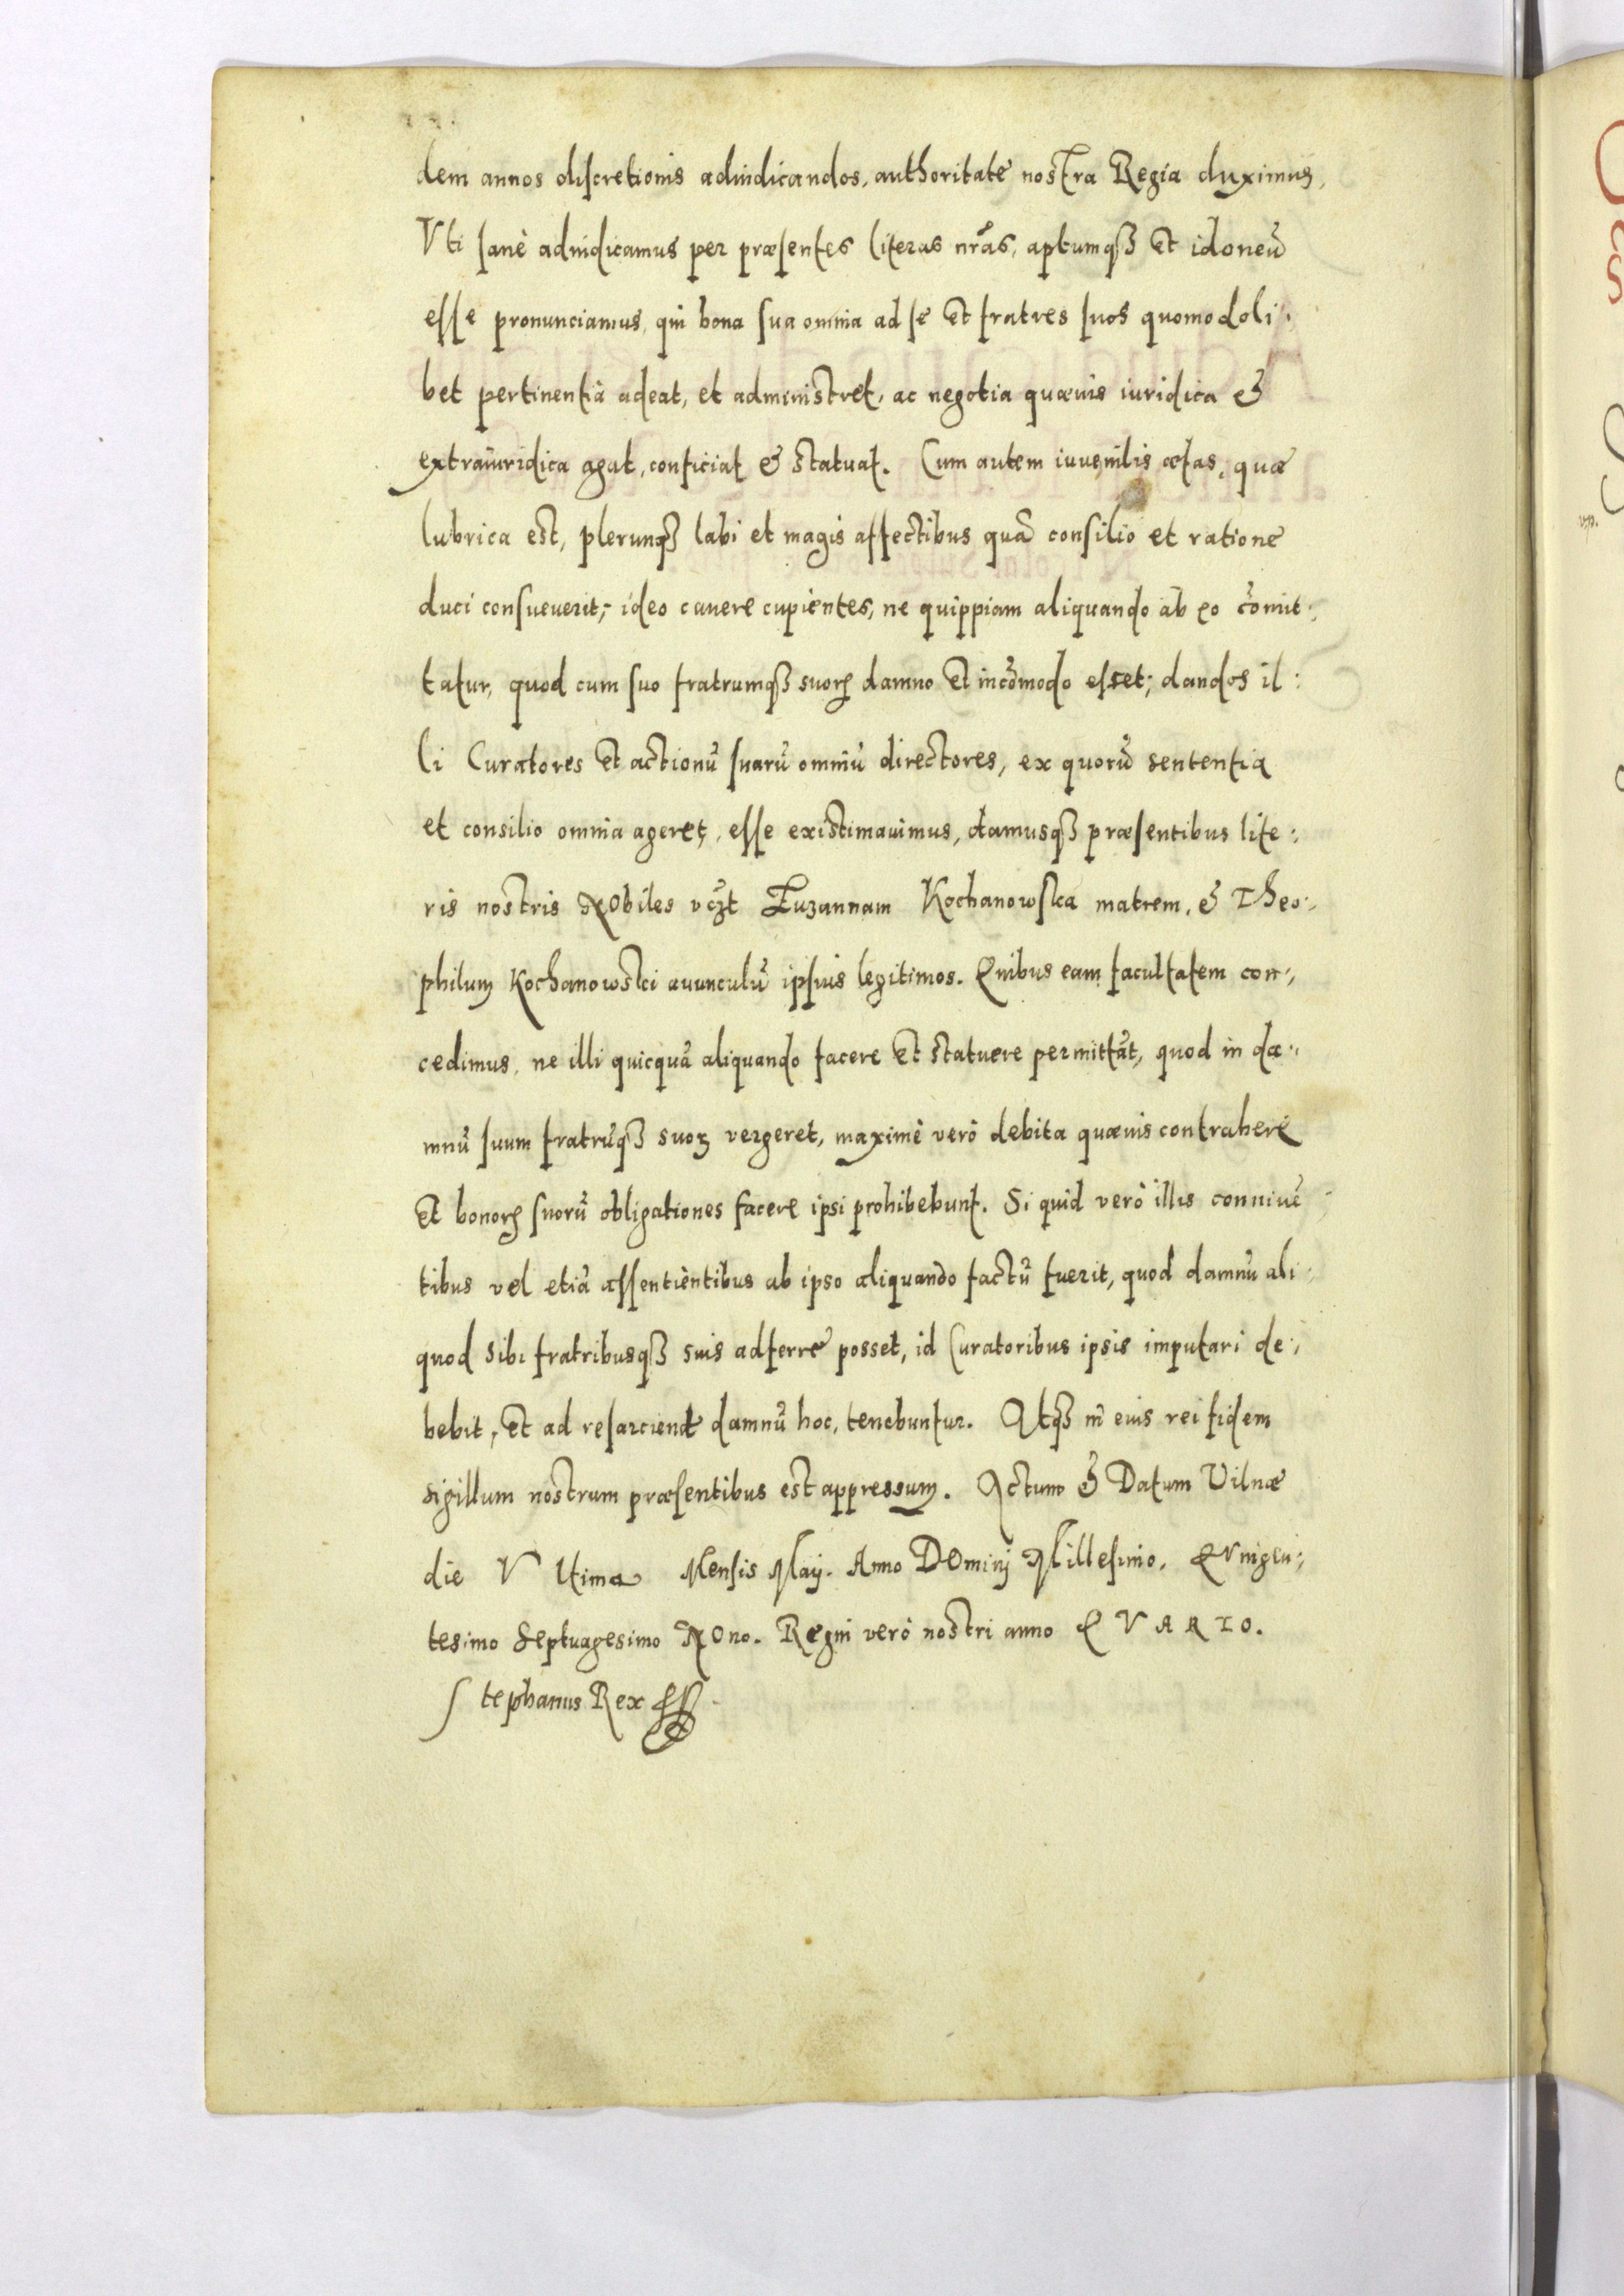 dem annos discretionis adiudicandos, authoritate nostra Regia duximus,
Vti sanè adiudicamus per præsentes literas nr̃as, aptumqꝫ et idoneū
esse pronunciamus, qui bona sua omnia ad se et fratres suos quomodoli:
bet pertinentia adeat, et administret, ac negotia quævis iuridica &
extraiuridica agat, conficiat & statuat. Cum autem iuvenilis ætas, quæ
lubrica est, plerunqꝫ labi et magis affectibus quā consilio et ratione
duci consueverit; ideo cavere cupientes, ne quippiam aliquando ab eo cōmit:
tatur, quod cum suo fratrumqꝫ suoꝝ damno et incōmodo esset; dandos il:
li Curatores et actionū suarū omniū directores, ex quorū sententia
et consilio omnia ageret, esse existimavimus, damusqꝫ præsentibus lite:
ris nostris Nobiles vcꝫt Zuzannam Kochanowska matrem, & Theo:
philum Kochanowski avunculū ipsius legitimos. Quibus eam facultatem con:
cedimus, ne illi quicquā aliquando facere et statuere permittāt, quod in da:
mnū suum fratrūqꝫ suoꝝ vergeret, maximè verò debita quævis contrahere
et bonoꝝ suorū obligationes facere ipsi prohibebunt. Si quid verò illis connivē
tibus vel etiā assentientibus ab ipso aliquando factū fuerit, quod damnū ali:
quod sibi fratribusqꝫ suis adferre posset, id Curatoribus ipsis imputari de:
bebit, et ad resarciend damnū hoc, tenebuntur. Atqꝫ in eius rei fidem
sigillum nostrum præsentibus est appressum. Actum & Datum Vilnæ
die Vltima Mensis Maij. Anno Dominj Millesimo. Quingen:
tesimo Septuagesimo Nono. Regni verò nostri anno QVARTO.
Stephanus Rex